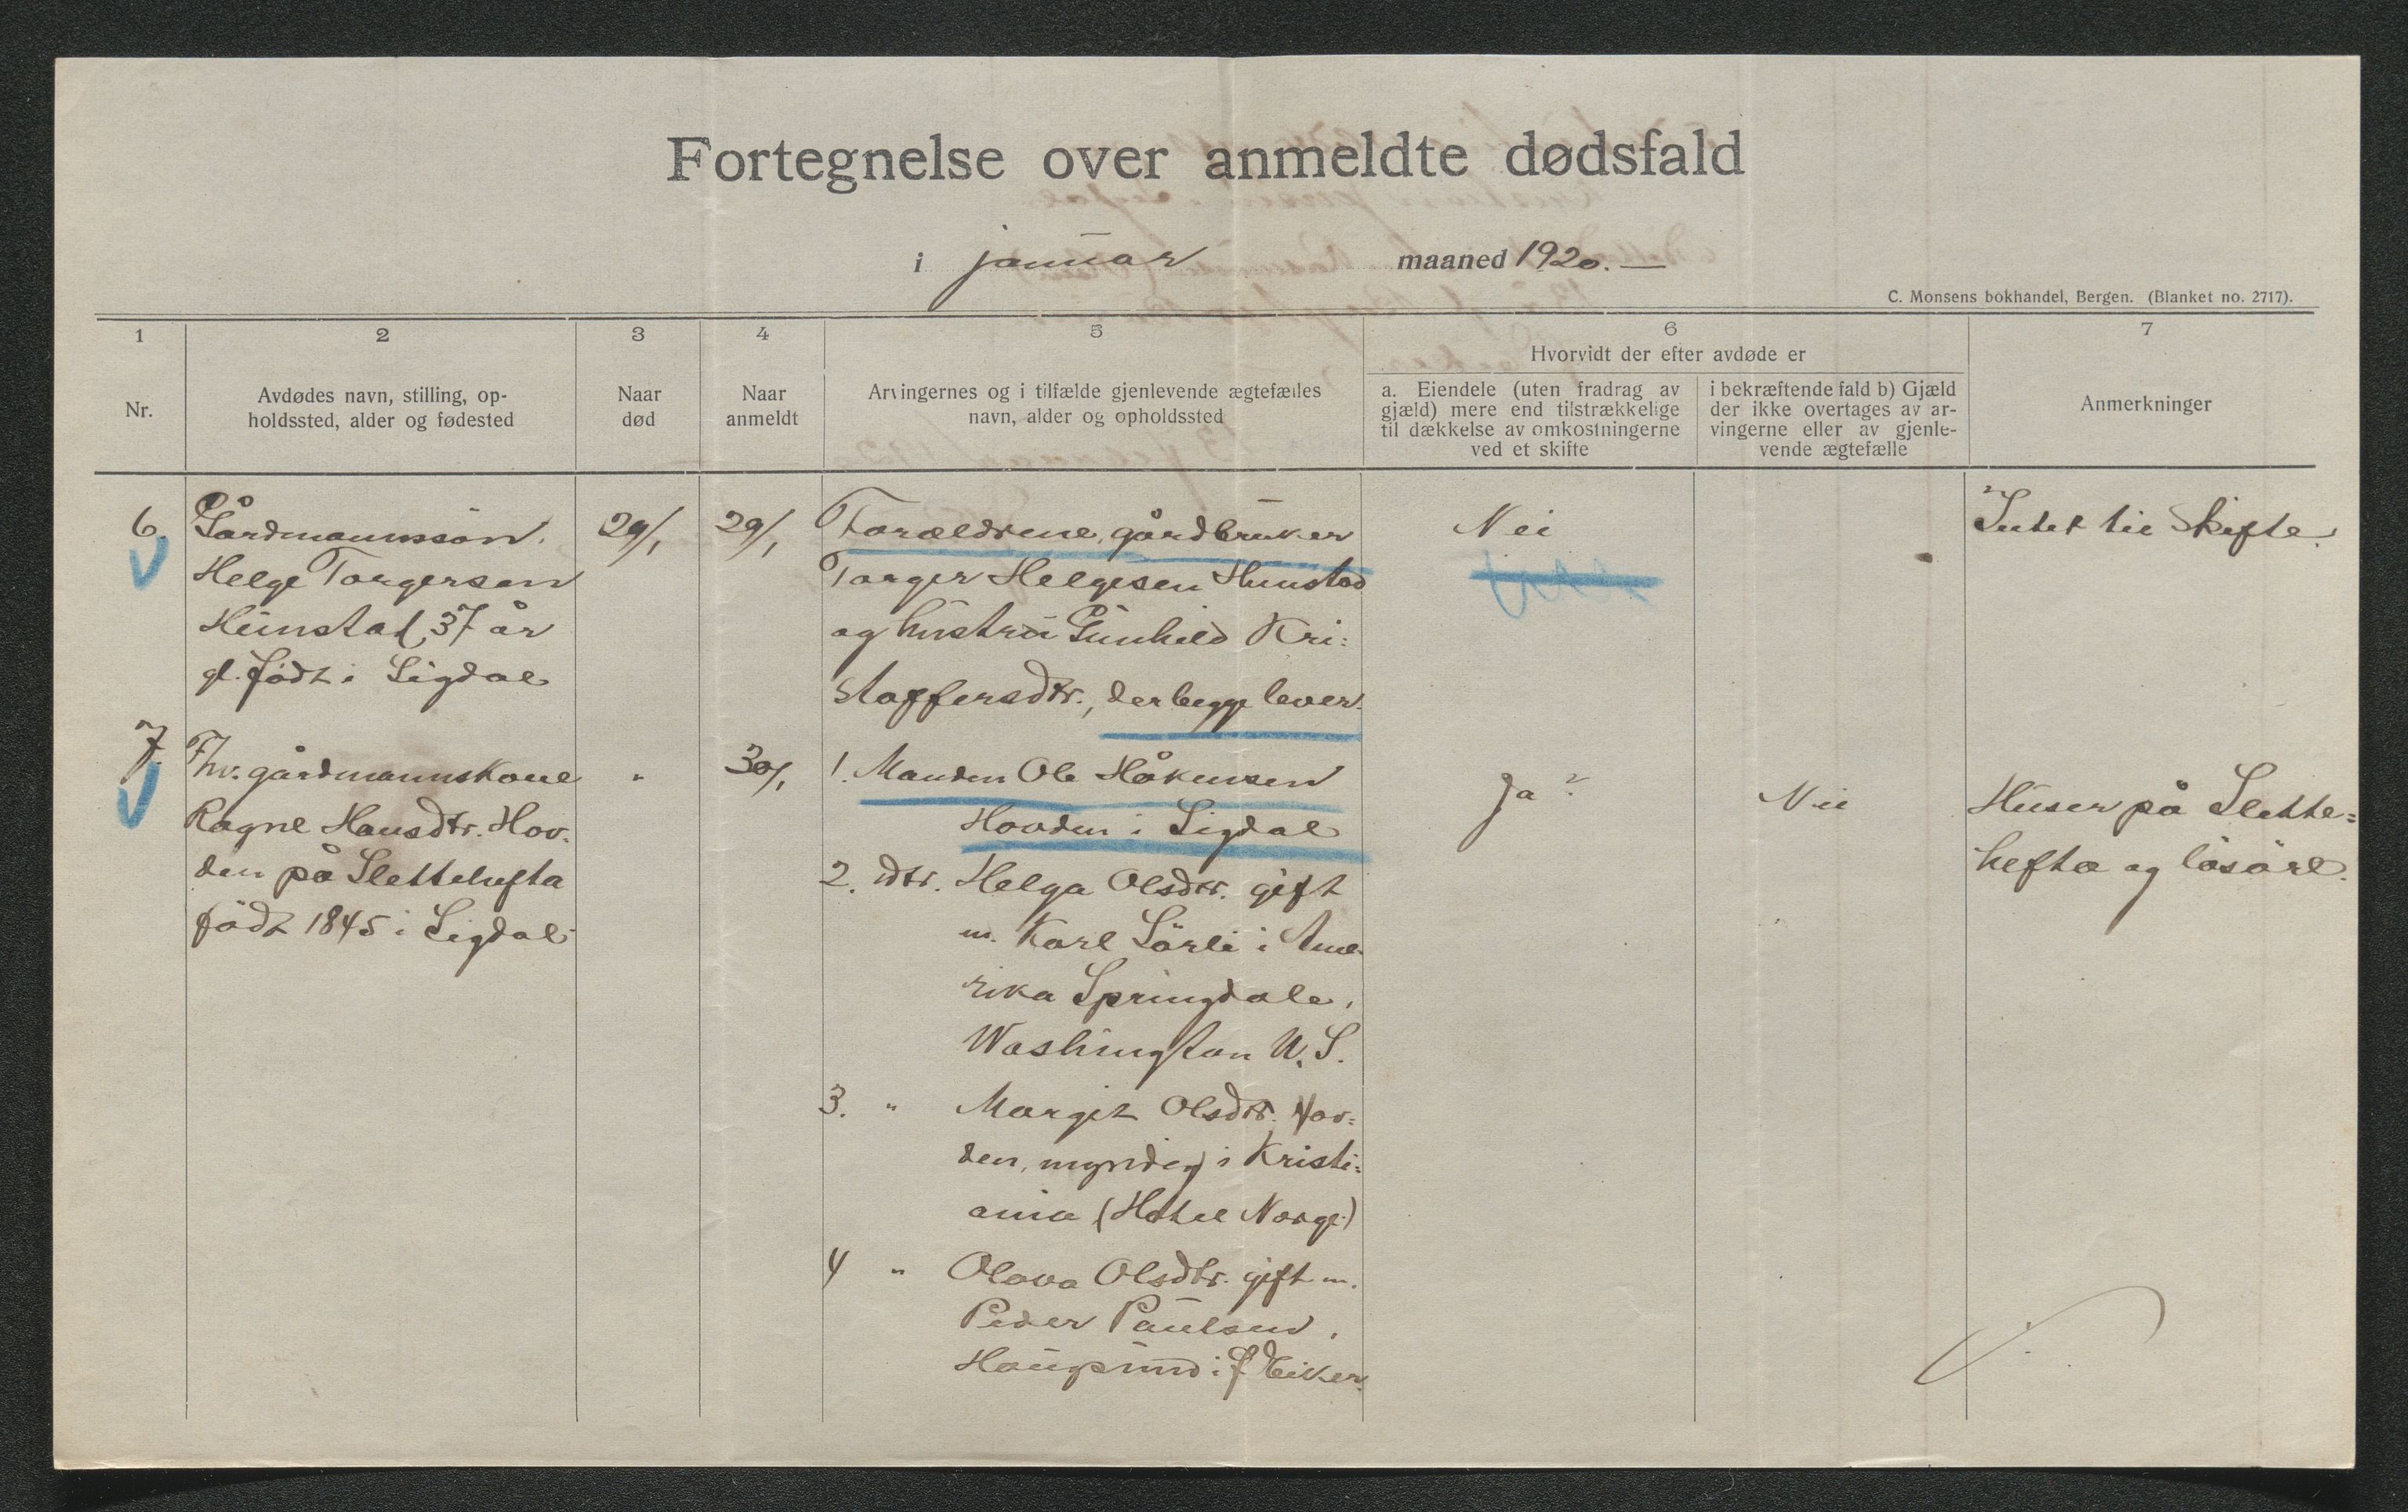 Fortegnelse over anmeldte dødsfald
i januar maaned 1920. —
C. Monsens bokhandel, Bergen. (Blanket no. 2717).
1
Nr.
2
Avdødes navn, stilling, op-
holdssted, alder og fødested
3
Naar
død
4
Naar
anmeldt
5
Arvingernes og i tilfælde gjenlevende ægtefælles
navn, alder og opholdssted
6
Hvorvidt der efter avdøde er
a. Eiendele (uten fradrag av
gjæld) mere end tilstrækkelige
til dækkelse av omkostningerne
ved et skifte
i bekræftende fald b) Gjæld
der ikke overtages av ar-
vingerne eller av gjenle-
vende ægtefælle
7
Anmerkninger
6.
Gårdmannssøn
Helge Torgersen
Hunstad, 37 år
gl. født i Sigdal
29/1
29/1
Forældrene, gårdbruker
Torger Helgesen Hunstad
og hustru Gunhild Kri=
stoffersdtr., der begge lever.
Nei
Intet til skifte.
7.
Fhv. gårdmannskone
Ragne Hansdtr. Hov-
den på Slettehefta
født 1845 i Sigdal
"
30/1
1. Manden Ole Håkensen
Hovden i Sigdal
2. dtr. Helga Olsdtr. gift
m. Karl Sørli i Ame-
rika Springdale,
Washington U.S.
3. " Margit Olsdtr. Hov=
den, myndig i Kristi=
ania (Hotel Norge)
4 " Olava Olsdtr. gift m.
Peder Paulsen,
Hougsund i Eiker.
Ja ?
Nei
Huser på Slette=
hefta og løsøre.